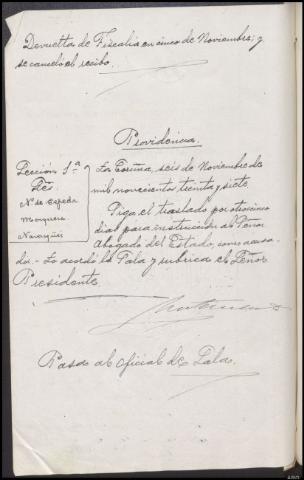 Devuelta de Fiscalia en cinco de Noviembre; y
se canceló el recibo.
Providencia.
Sección 1.ª
Srs.
Nº de Cepeda
Marquina
Navazqüés
La Coruña, seis de Noviembre de
mil novecientos treinta y siete.
Siga el traslado por otros cinco
dias para instrucción al Señor
Abogado del Estado, como acusa-
dor.- Lo acordó la Sala y rubrica el Señor
Presidente.
Pasa al oficial de Sala.